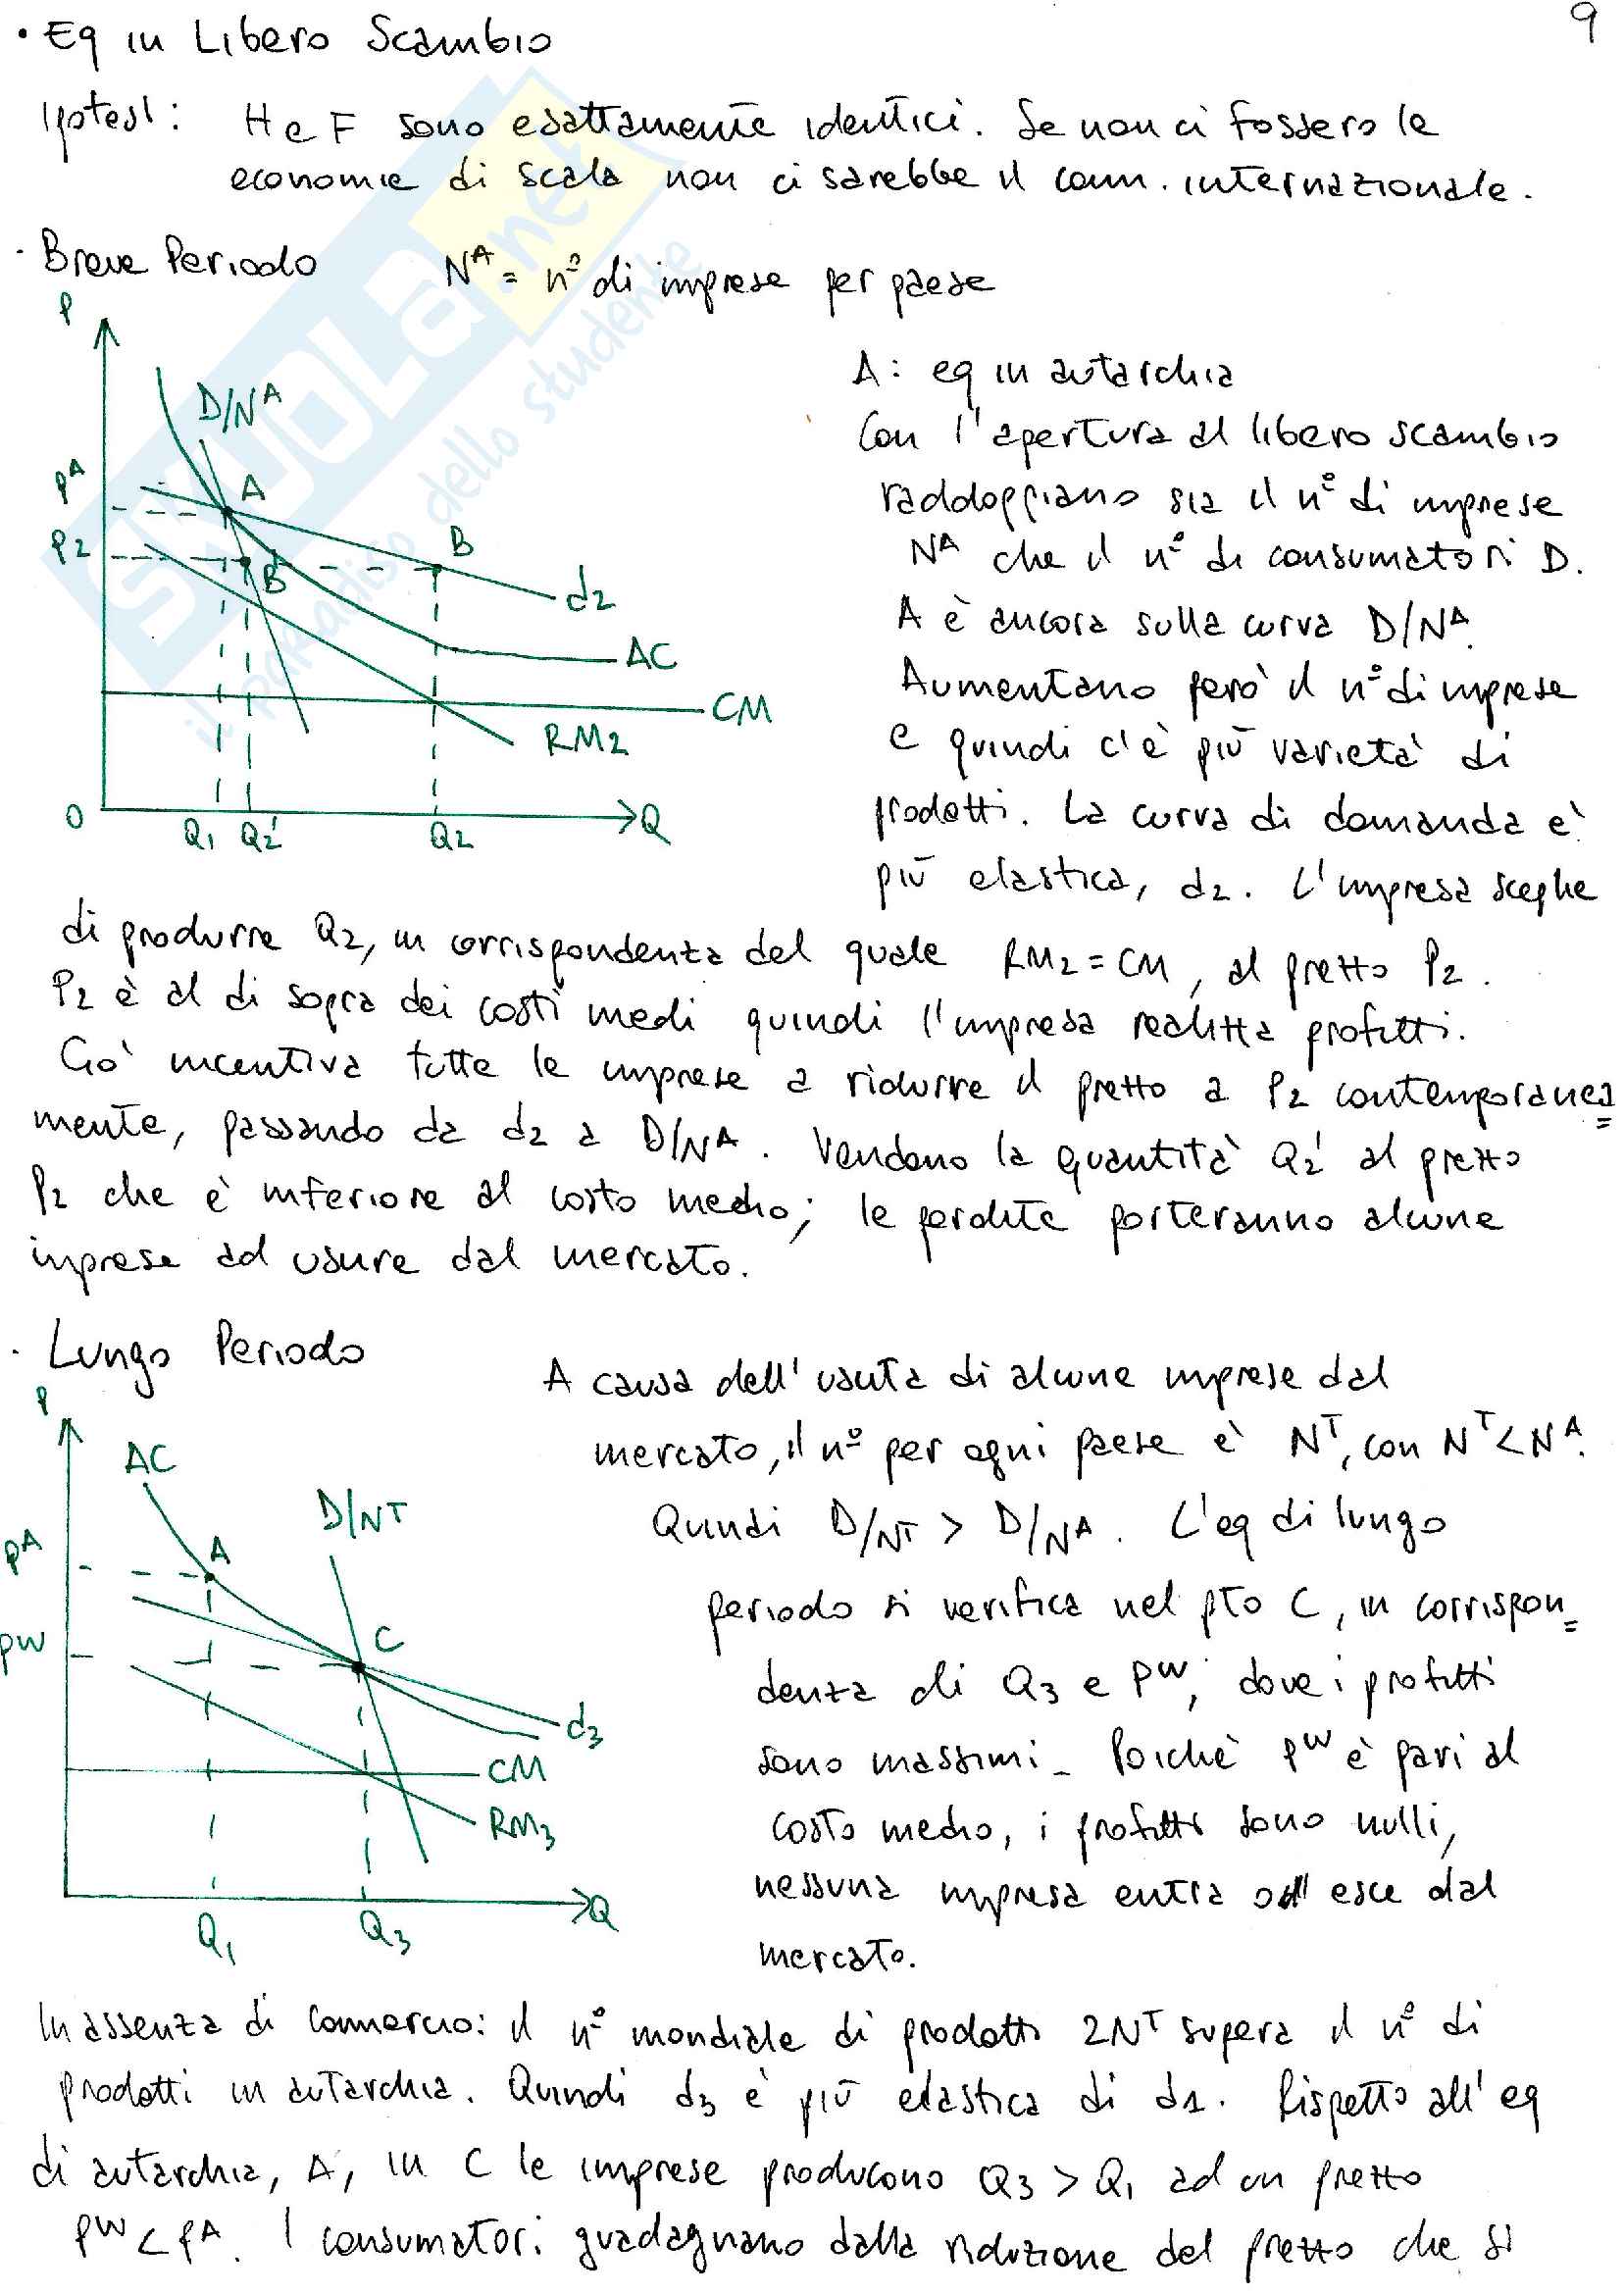 9
• Eq in Libero Scambio
Ipotesi: H e F sono esattamente identici. Se non ci fossero le
economie di scala non ci sarebbe il comm. internazionale.
· Breve Periodo
N^A = n° di imprese per paese
P
D/N^A
P^A
A
P2
B
B'
d2
AC
CM
RM2
O
Q1
Q2'
Q2
Q
A: eq in autarchia
Con l'apertura al libero scambio
raddoppiano sia il n° di imprese
N^A che il n° di consumatori D.
A è ancora sulla curva D/N^A.
Aumentano però il n° di imprese
e quindi c'è più varietà di
prodotti. La curva di domanda è
più elastica, d2. L'impresa sceglie
di produrre Q2, in corrispondenza del quale RM2 = CM, al prezzo P2.
P2 è al di sopra dei costi medi quindi l'impresa realizza profitti.
Ciò incentiva tutte le imprese a ridurre il prezzo a P2 contemporanea=
mente, passando da d2 a D/N^A. Vendono la quantità Q2' al prezzo
P2 che è inferiore al costo medio; le perdite porteranno alcune
imprese ad uscire dal mercato.
· Lungo Periodo
P
AC
D/NT
P^A
A
P^W
C
d3
CM
RM3
Q1
Q3
Q
A causa dell'uscita di alcune imprese dal
mercato, il n° per ogni paese è N^T, con N^T < N^A.
Quindi D/N^T > D/N^A. L'eq di lungo
periodo si verifica nel pto C, in corrispon=
denza di Q3 e P^W, dove i profitti
sono massimi. Poichè P^W è pari al
costo medio, i profitti sono nulli,
nessuna impresa entra od esce dal
mercato.
In assenza di commercio: il n° mondiale di prodotti 2N^T supera il n° di
prodotti in autarchia. Quindi d3 è più elastica di d1. Rispetto all'eq
di autarchia, A, in C le imprese producono Q3 > Q1 ad un prezzo
P^W < P^A. I consumatori guadagnano dalla riduzione del prezzo che si
SKUOLA.net
il paradiso dello studente